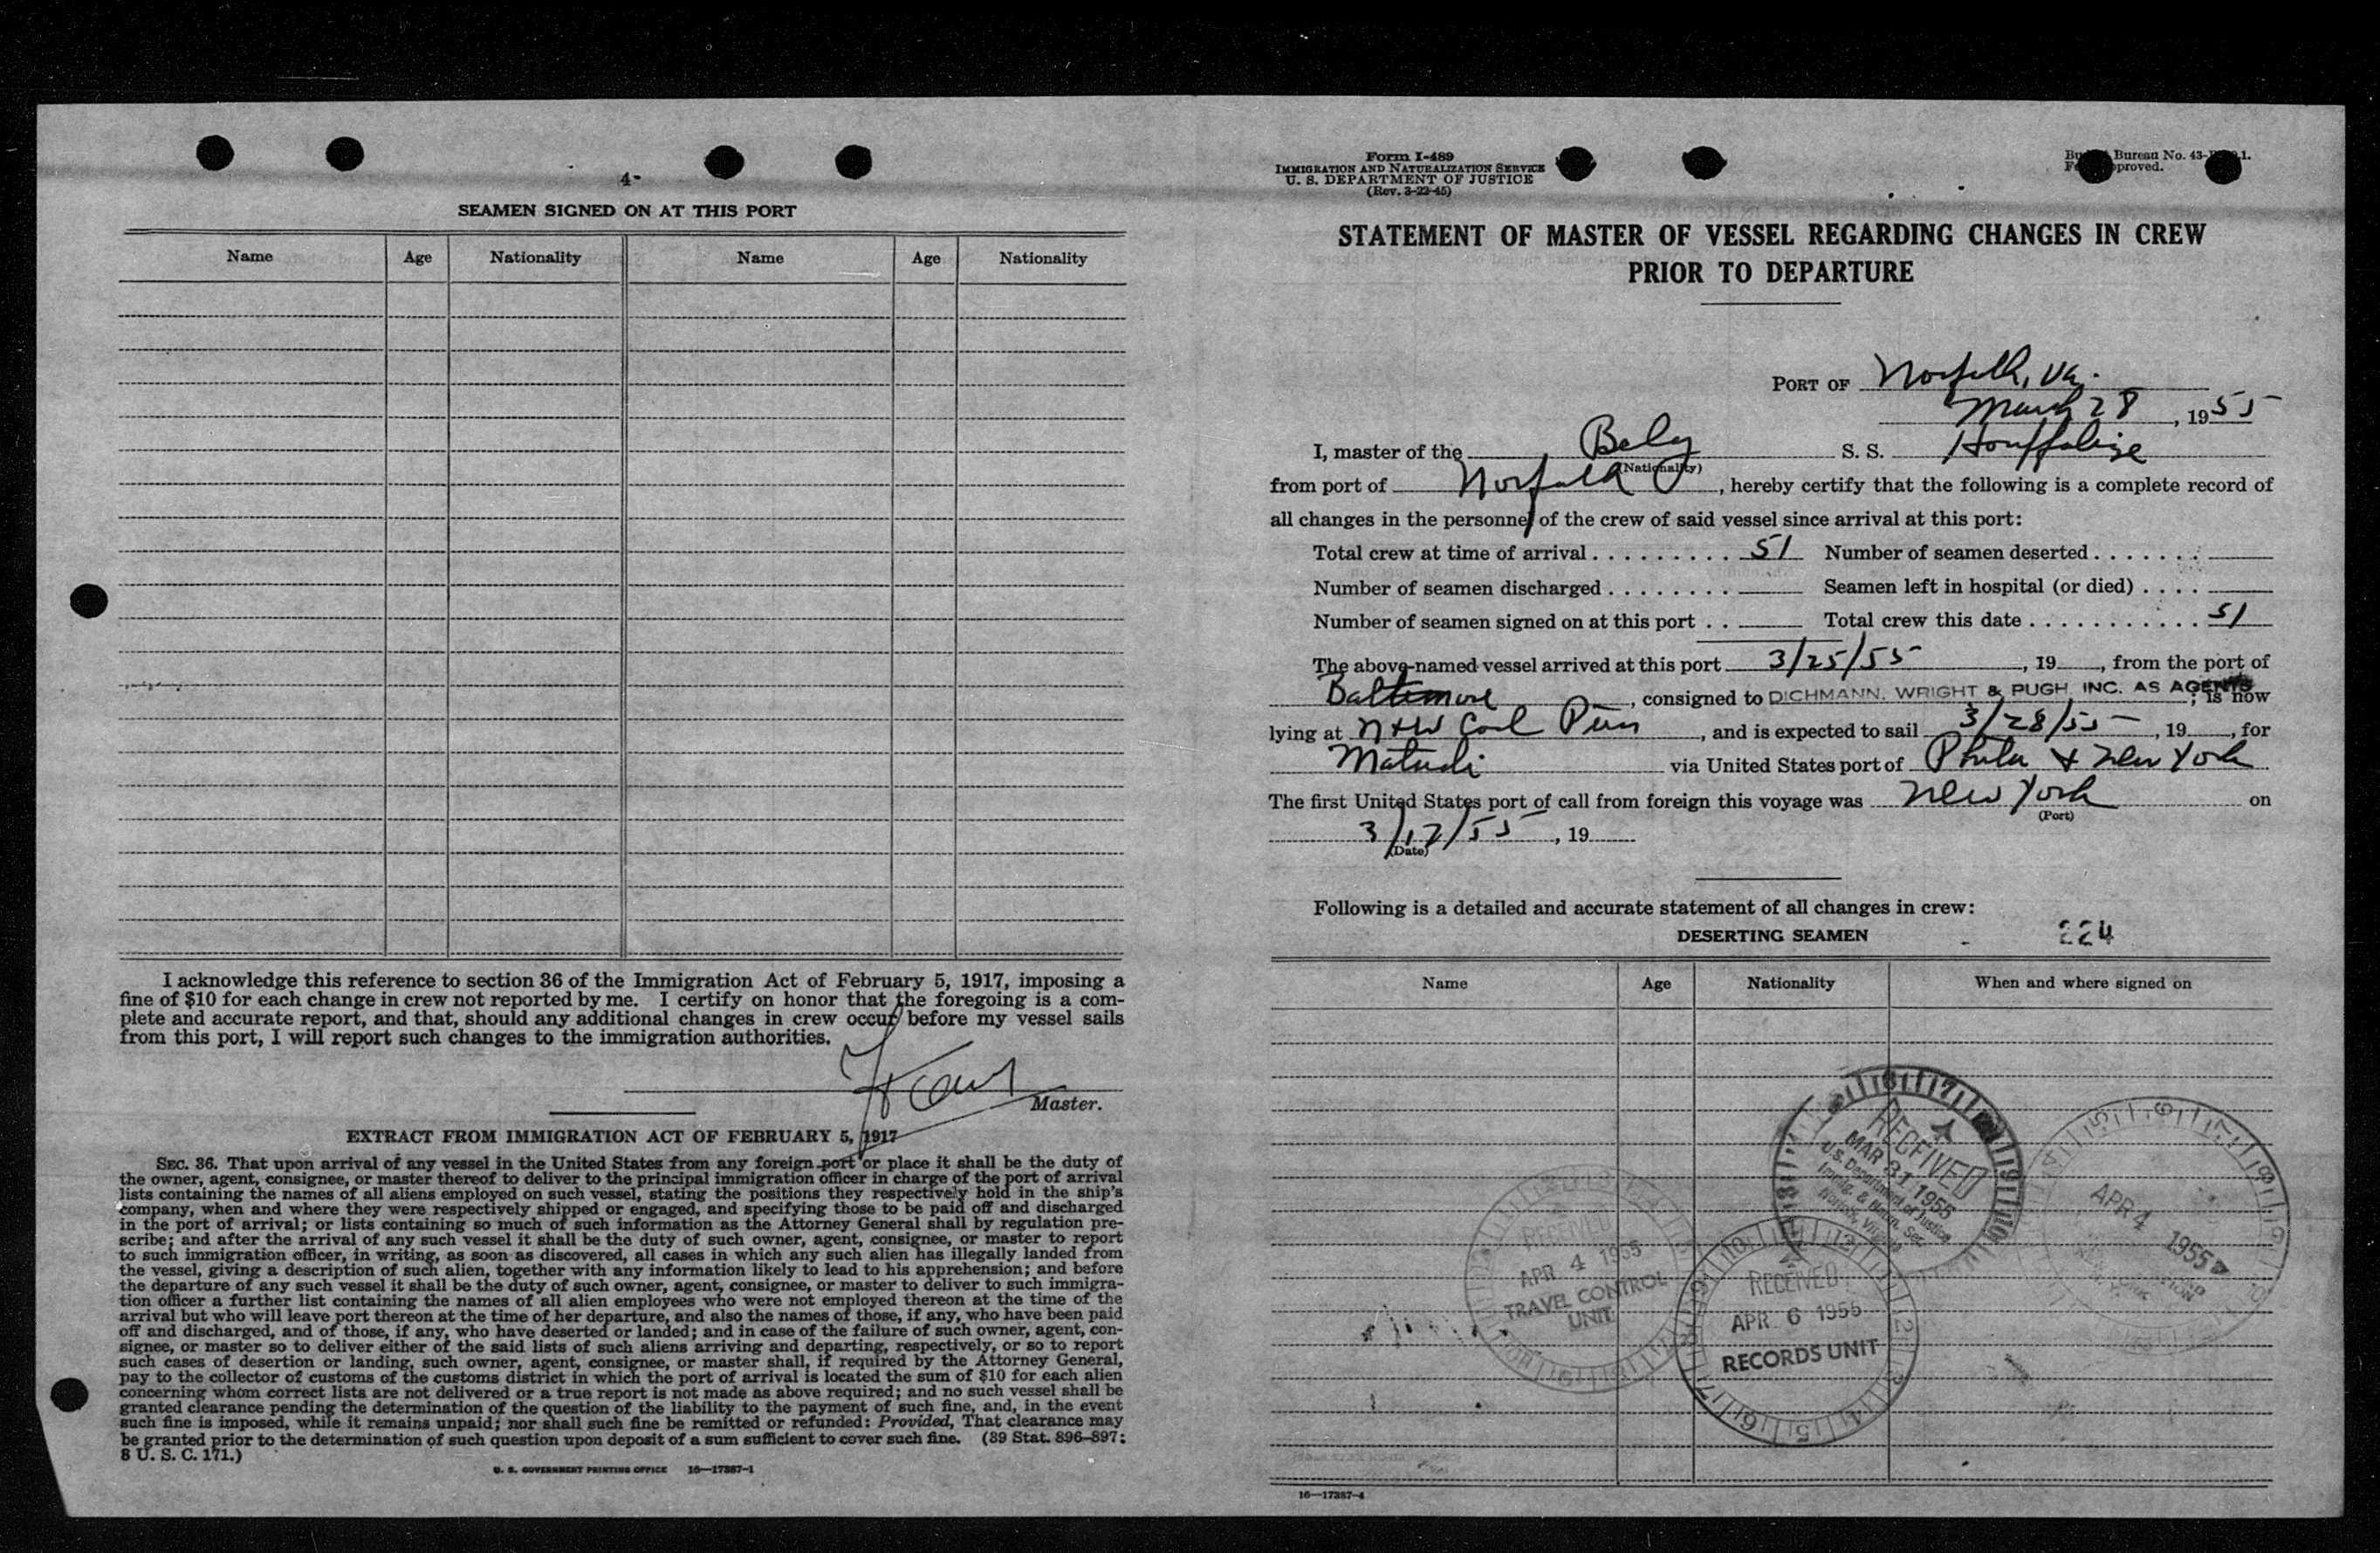 4-
SEAMEN SIGNED ON AT THIS PORT
Name Age Nationality Name Age Nationality
I acknowledge this reference to section 36 of the Immigration Act of February 5, 1917, imposing a
fine of $10 for each change in crew not reported by me. I certify on honor that the foregoing is a com-
plete and accurate report, and that, should any additional changes in crew occur before my vessel sails
from this port, I will report such changes to the immigration authorities.
Master.
EXTRACT FROM IMMIGRATION ACT OF FEBRUARY 5, 1917
SEC. 36. That upon arrival of any vessel in the United States from any foreign port or place it shall be the duty of
the owner, agent, consignee, or master thereof to deliver to the principal immigration officer in charge of the port of arrival
lists containing the names of all aliens employed on such vessel, stating the positions they respectively hold in the ship's
company, when and where they were respectively shipped or engaged, and specifying those to be paid off and discharged
in the port of arrival; or lists containing so much of such information as the Attorney General shall by regulation pre-
scribe; and after the arrival of any such vessel it shall be the duty of such owner, agent, consignee, or master to report
to such immigration officer, in writing, as soon as discovered, all cases in which any such alien has illegally landed from
the vessel, giving a description of such alien, together with any information likely to lead to his apprehension; and before
the departure of any such vessel it shall be the duty of such owner, agent, consignee, or master to deliver to such immigra-
tion officer a further list containing the names of all alien employees who were not employed thereon at the time of the
arrival but who will leave port thereon at the time of her departure, and also the names of those, if any, who have been paid
off and discharged, and of those, if any, who have deserted or landed; and in case of the failure of such owner, agent, con-
signee, or master so to deliver either of the said lists of such aliens arriving and departing, respectively, or so to report
such cases of desertion or landing, such owner, agent, consignee, or master shall, if required by the Attorney General,
pay to the collector of customs of the customs district in which the port of arrival is located the sum of $10 for each alien
concerning whom correct lists are not delivered or a true report is not made as above required; and no such vessel shall be
granted clearance pending the determination of the question of the liability to the payment of such fine, and, in the event
such fine is imposed, while it remains unpaid; nor shall such fine be remitted or refunded: Provided, That clearance may
be granted prior to the determination of such question upon deposit of a sum sufficient to cover such fine. (39 Stat. 896-897;
8 U. S. C. 171.)
U. S. GOVERNMENT PRINTING OFFICE 16—17387-1
Form I-489
IMMIGRATION AND NATURALIZATION SERVICE
U. S. DEPARTMENT OF JUSTICE
(Rev. 3-22-45)
Bureau No. 43-
STATEMENT OF MASTER OF VESSEL REGARDING CHANGES IN CREW
PRIOR TO DEPARTURE
PORT OF Norfolk, Va.
March 28, 1955
I, master of the Belg S. S. Houffalize
(Nationality)
from port of Norfolk, hereby certify that the following is a complete record of
all changes in the personnel of the crew of said vessel since arrival at this port:
Total crew at time of arrival . . . . . . . . . 51 Number of seamen deserted . . . . . . .
Number of seamen discharged . . . . . . . . Seamen left in hospital (or died) . . . .
Number of seamen signed on at this port . . Total crew this date . . . . . . . . . . . 51
The above-named vessel arrived at this port 3/25/55, 19, from the port of
Baltimore, consigned to DICHMANN, WRIGHT & PUGH, INC. AS AGENTS; is now
lying at N+W Coal Piers, and is expected to sail 3/28/55, 19, for
Matadi via United States port of Phila + New York
The first United States port of call from foreign this voyage was New York on
(Port)
3/17/55, 19
(Date)
Following is a detailed and accurate statement of all changes in crew:
DESERTING SEAMEN
224
Name Age Nationality When and where signed on
RECEIVED
MAR 31 1955
U.S. Department of Justice
Immig. & Natzn. Ser.
Norfolk, Virginia
APR 4 1955
RECEIVED
APR 4 1955
TRAVEL CONTROL
UNIT
RECEIVED
APR 6 1955
RECORDS UNIT
16—17387-4